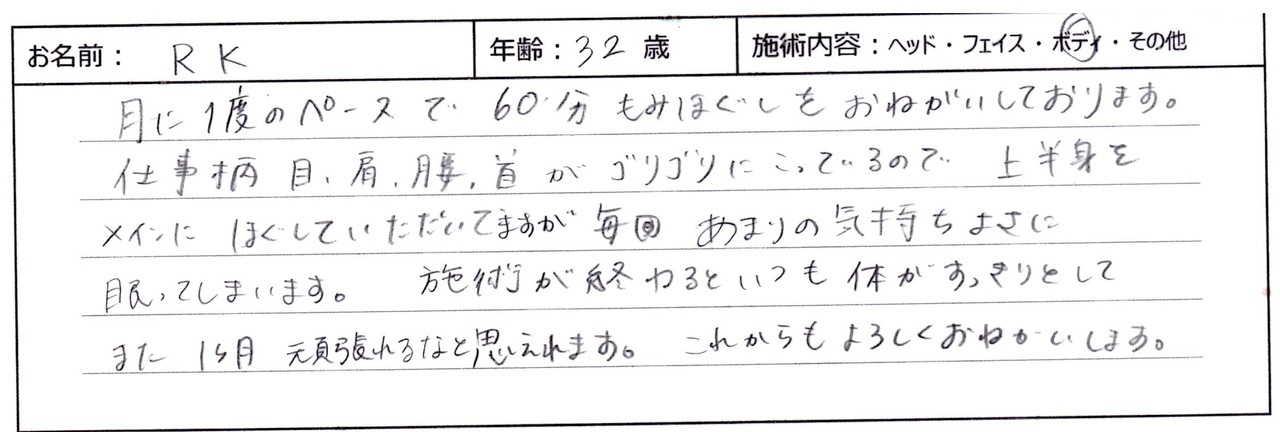 お名前： R K 年齢：32 歳 施術内容：ヘッド・フェイス・ボディ・その他
月に1度のペースで 60分 もみほぐしを おねがいしております。
仕事柄 目、肩、腰、首が ゴリゴリに こっているので 上半身を
メインに ほぐしていただいてますが 毎回 あまりの気持ちよさに
眠ってしまいます。 施術が終わるといつも 体がすっきりとして
また 1ヶ月 頑張れるなと思えれます。 これからも よろしくおねがいします。